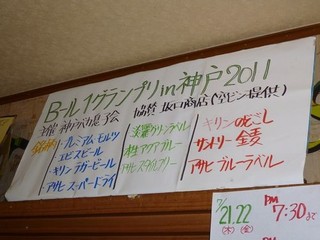 B-ル1グランプリin神戸2011
主催 神戸穴場子会 協賛 坂口商店(空ビン提供)
プレミアムモルツ
エビスビール
キリン ラガービール
アサヒ スーパードライ
淡麗グリーンラベル
アクアブルー
アサヒスタイルフリー
キリン のどごし
サントリー 金麦
アサヒ ブルーラベル
7/21.22
(木)(金)
PM
7:30まで